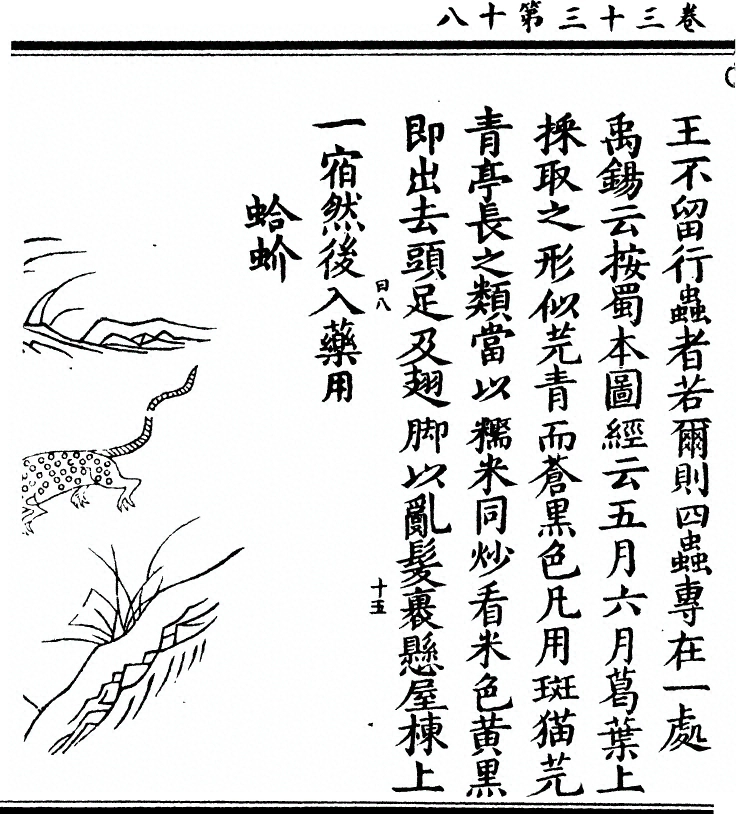 卷三十三第十八
王不留行蟲者若爾則四蟲專在一處
禹錫云按蜀本圖經云五月六月葛葉上
採取之形似芫青而蒼黑色凡用斑猫芫
青亭長之類當以糯米同炒看米色黄黒
即出去頭足及翅脚以亂髪裹懸屋棟上
曰八
十五
一宿然後入藥用
蛤蚧